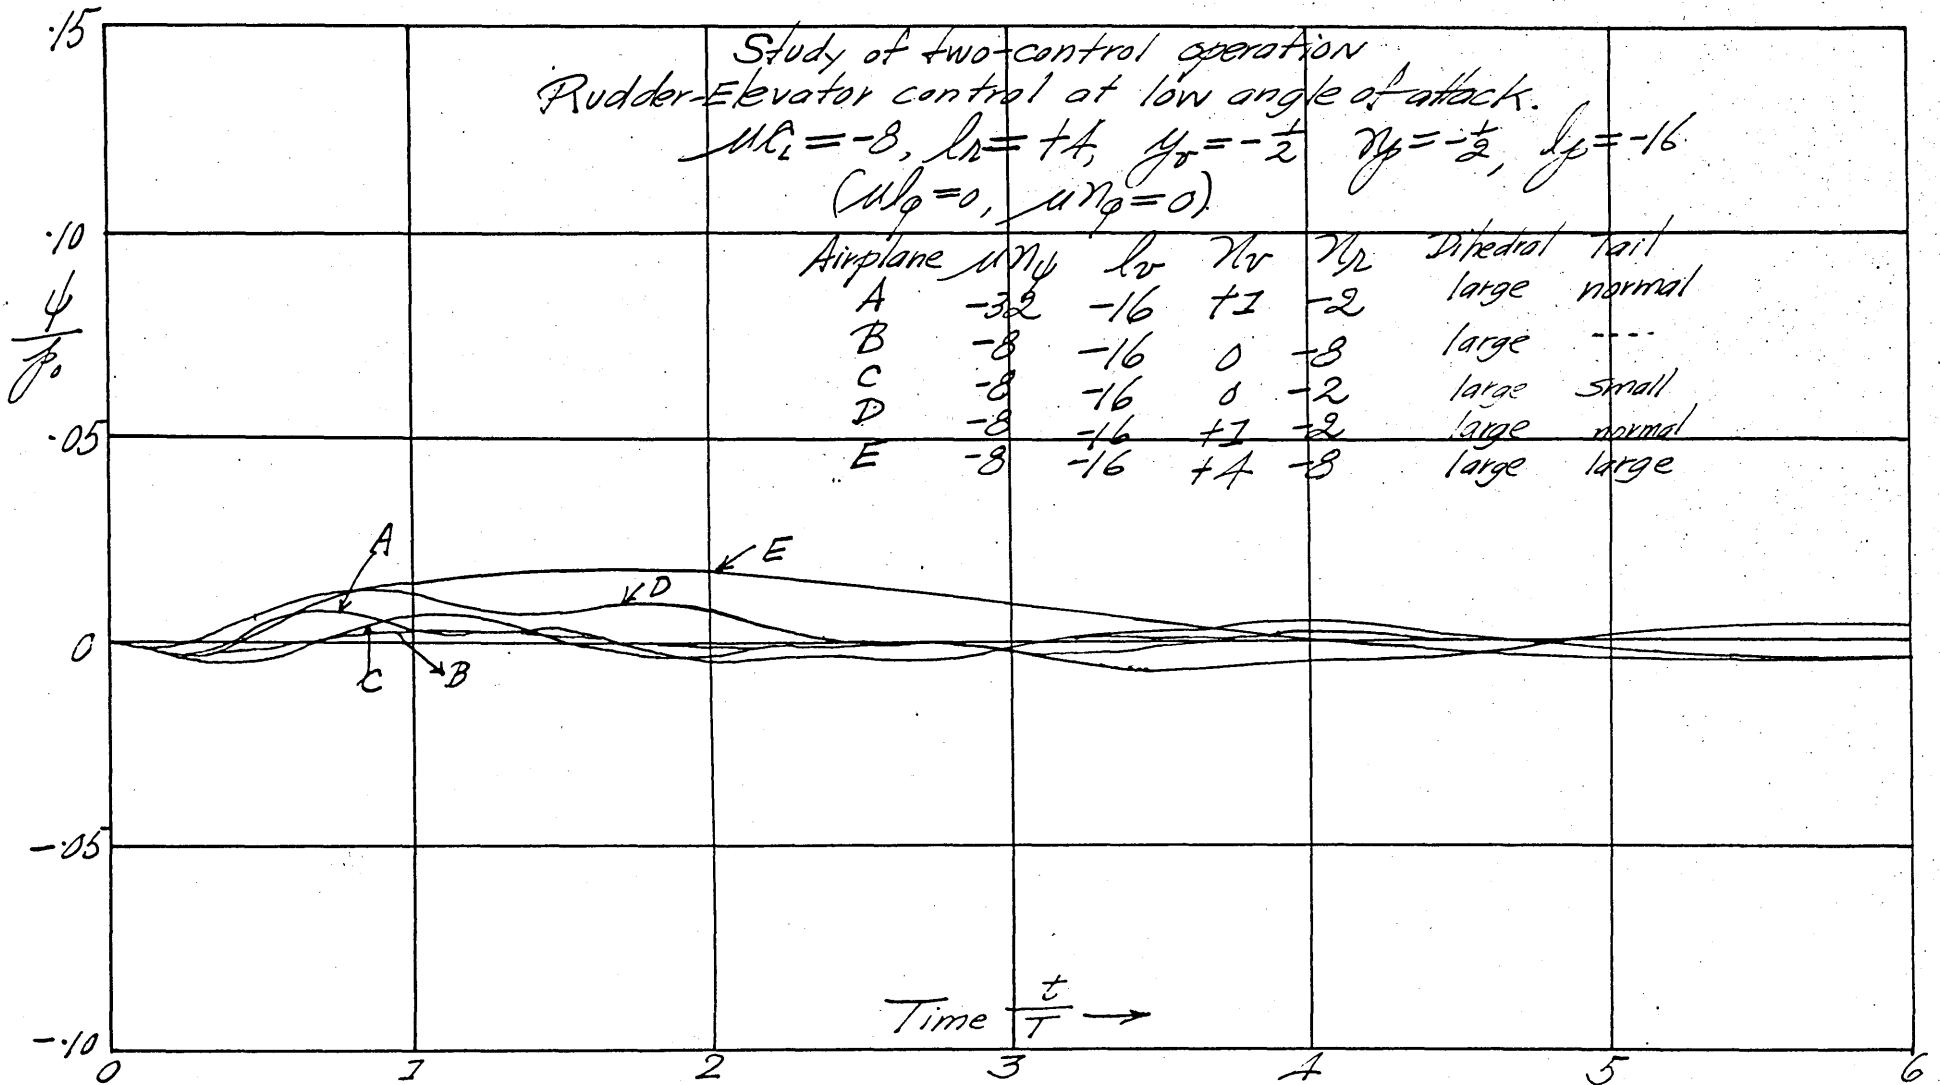 .15
Study of two-control operation
Rudder-Elevator control at low angle of attack.
lᵣ = +4, yᵥ = -1/2 nₚ = -1/2, lₚ = -16
(μlφ = 0, μnφ = 0)
.10
Airplane μnψ lᵥ nᵥ nᵣ Dihedral Tail
A -32 -16 +1 -2 large normal
B -8 -16 0 -8 large ----
C -8 -16 0 -2 large small
D -8 -16 +1 -2 large normal
E -8 -16 +4 -8 large large
ψ/p₀
.05
A
E
D
0
C
B
-.05
Time t/T →
-.10
0 1 2 3 4 5 6